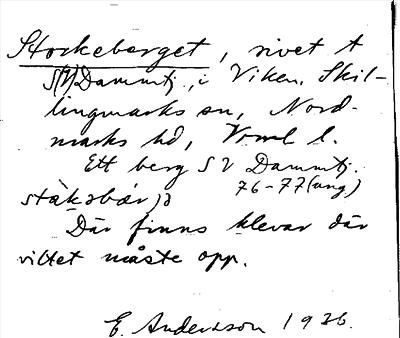 Stockeberget, rivet t
S(V) Dammtj., i Viken, Skil-
lingmarks sn, Nord-
marks hd, Vrml l.
Ett berg SV Dammtj.
76-77 (ung)
ståkəbær̥jə
Där finns klevar där
viltet måste opp.
E. Andersson 1926.